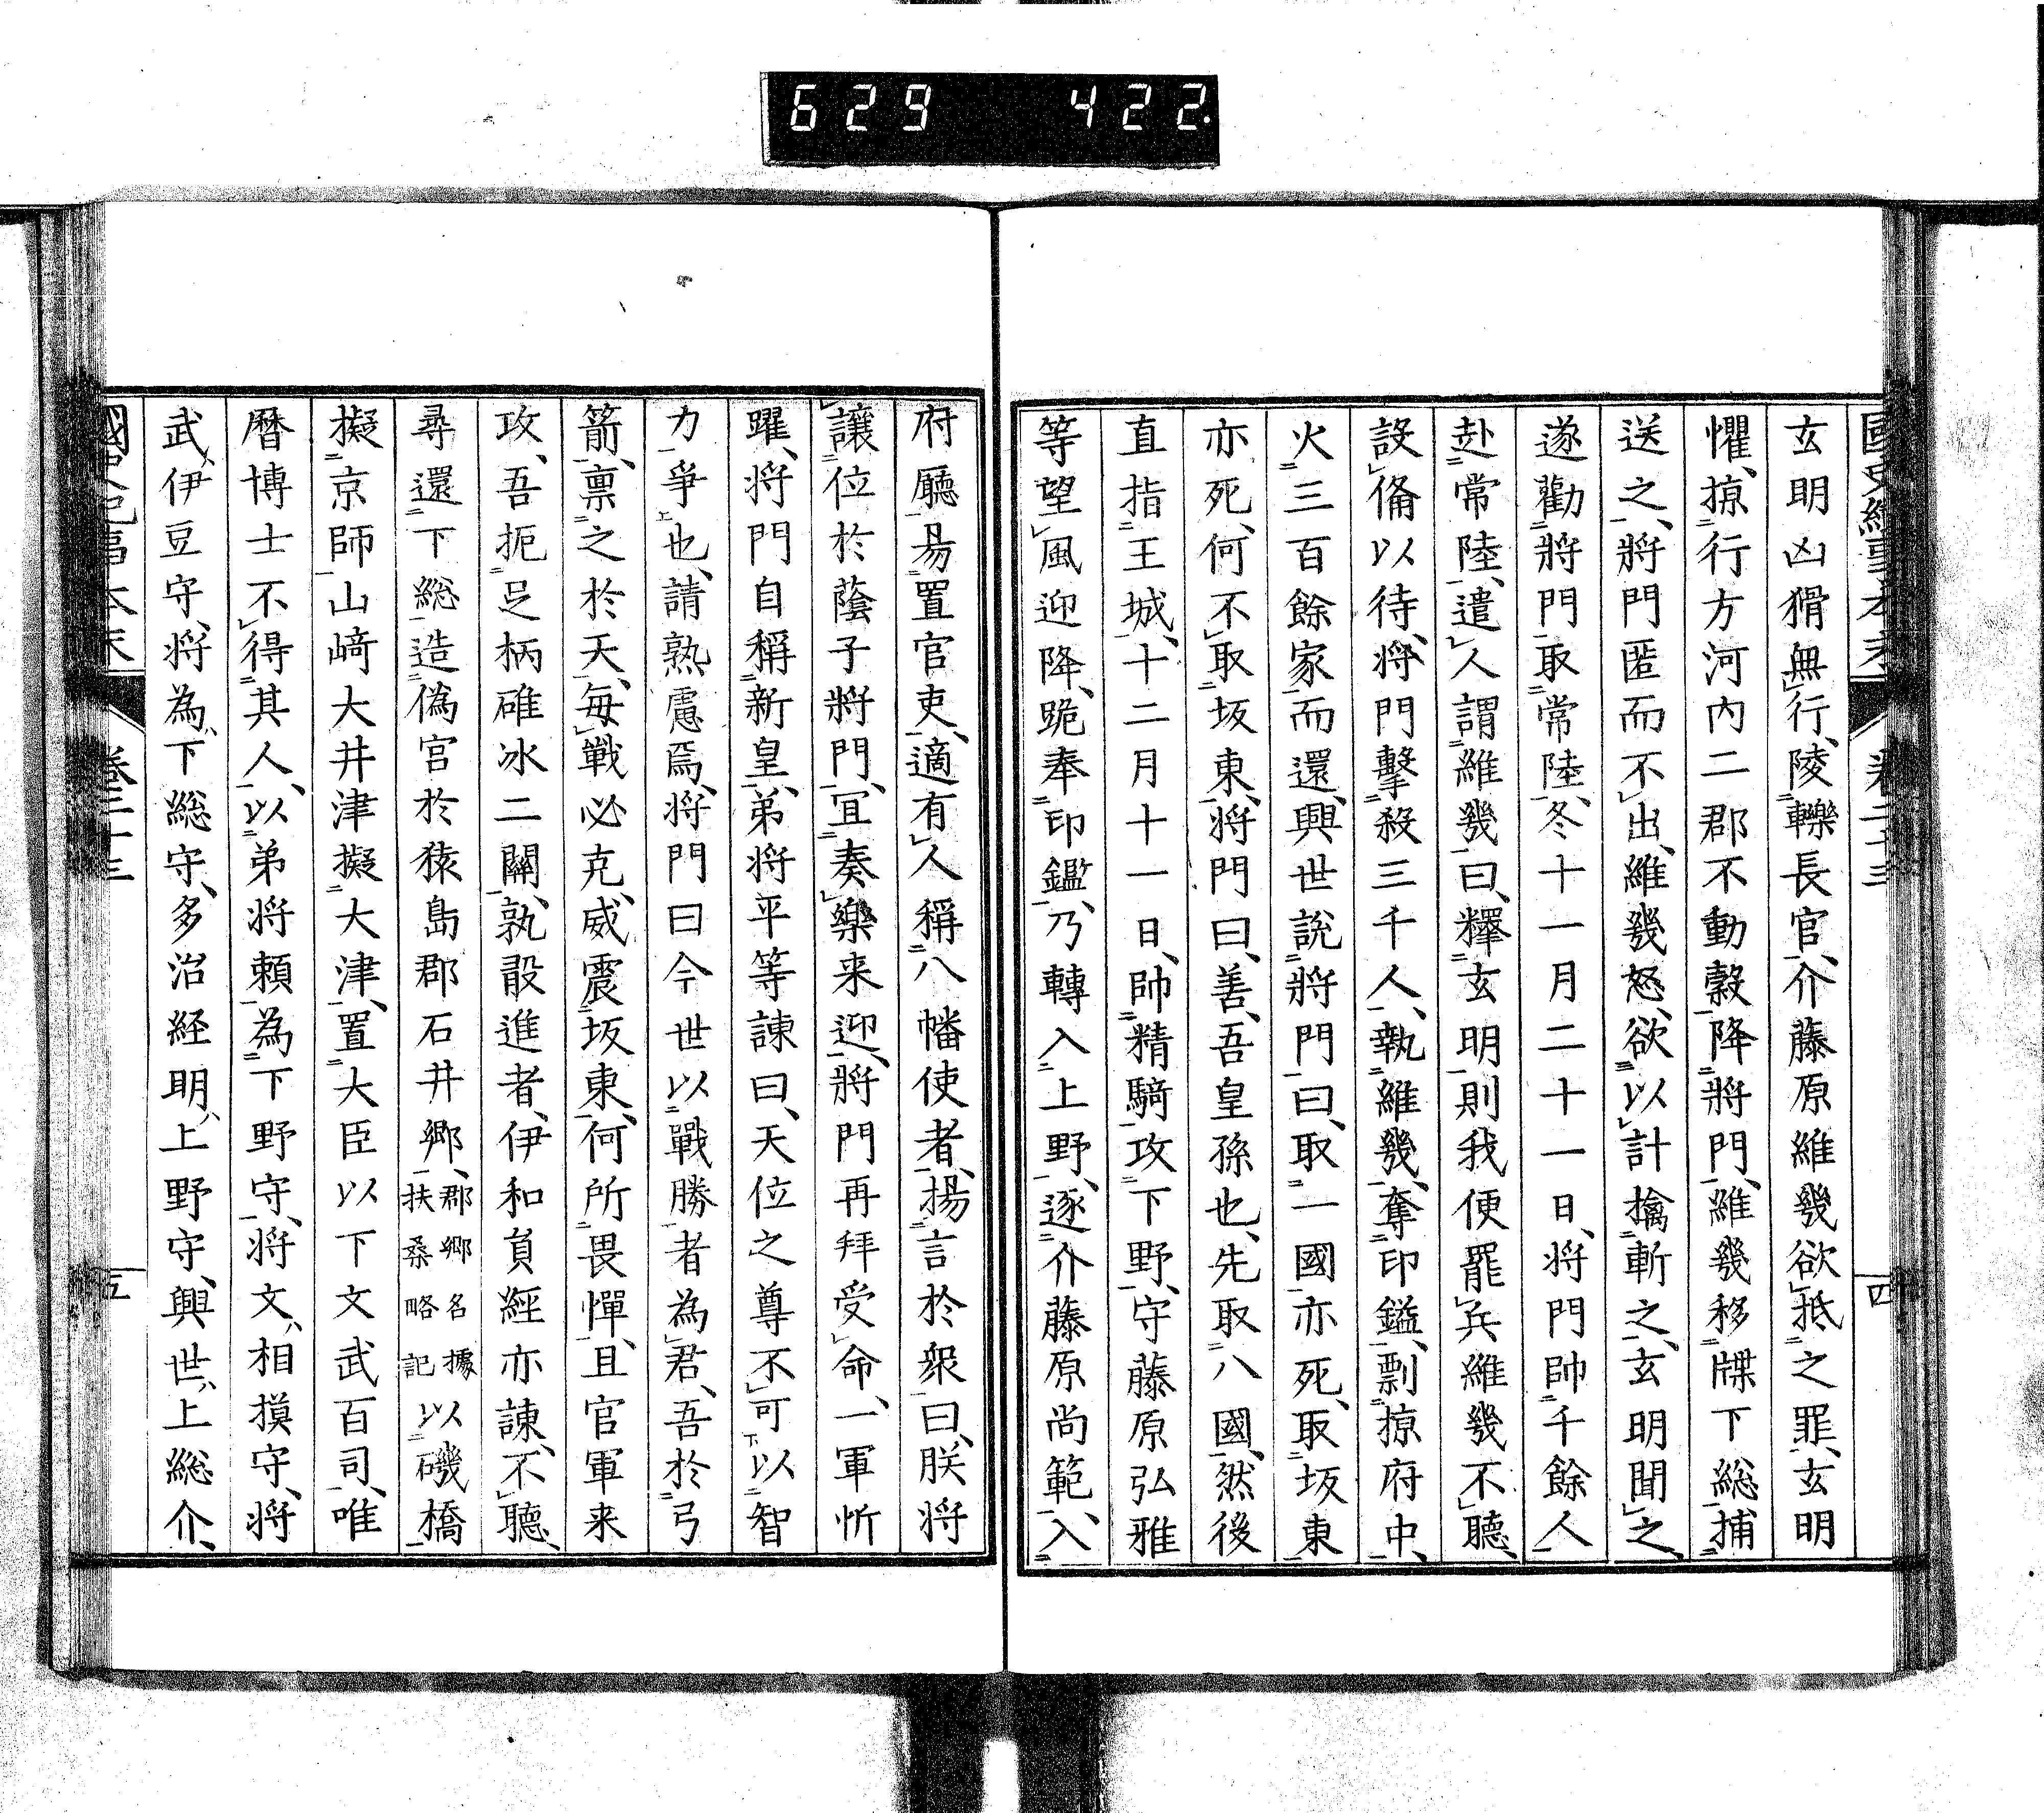 629 422
國史紀事本末 卷二十三 四
玄明凶猾無行、陵轢長官、介藤原維幾欲抵之罪、玄明
懼、掠行方河内二郡不動穀、降將門、維幾移牒下総捕
送之、將門匿而不出、維幾怒、欲以計擒斬之、玄明聞之、
遂勸將門取常陸、冬十一月二十一日、將門帥千餘人
赴常陸、遣人謂維幾曰、釋玄明則我便罷兵維幾不聽、
設備以待、將門擊殺三千人、執維幾、奪印鎰、剽掠府中、
火三百餘家而還、興世說將門曰、取一國亦死、取坂東
亦死、何不取坂東、將門曰、善、吾皇孫也、先取八國、然後
直指王城、十二月十一日、帥精騎攻下野、守藤原弘雅
等望風迎降、跪奉印鑑、乃轉入上野、逐介藤原尚範、入
府廳易置官吏、適有人稱八幡使者、揚言於衆曰、朕将
讓位於蔭子將門、宜奏樂来迎、將門再拜受命、一軍忻
躍、将門自稱新皇、弟将平等諫曰、天位之尊不可以智
力爭也、請熟慮焉、将門曰今世以戰勝者為君、吾於弓
箭、禀之於天、每戰必克、威震坂東、何所畏憚、且官軍来
攻、吾扼足柄碓冰二關、孰敢進者、伊和負經亦諫、不聽、
尋還下総造偽宮於猿島郡石井郷、郡郷名據扶桑略記以磯橋
擬京師山﨑大井津擬大津、置大臣以下文武百司、唯
暦博士不得其人、以弟将頼為下野守、将文、相摸守、将
武、伊豆守、将為、下総守、多治経明、上野守、興世、上総介、
國史紀事本末 卷二十三 五